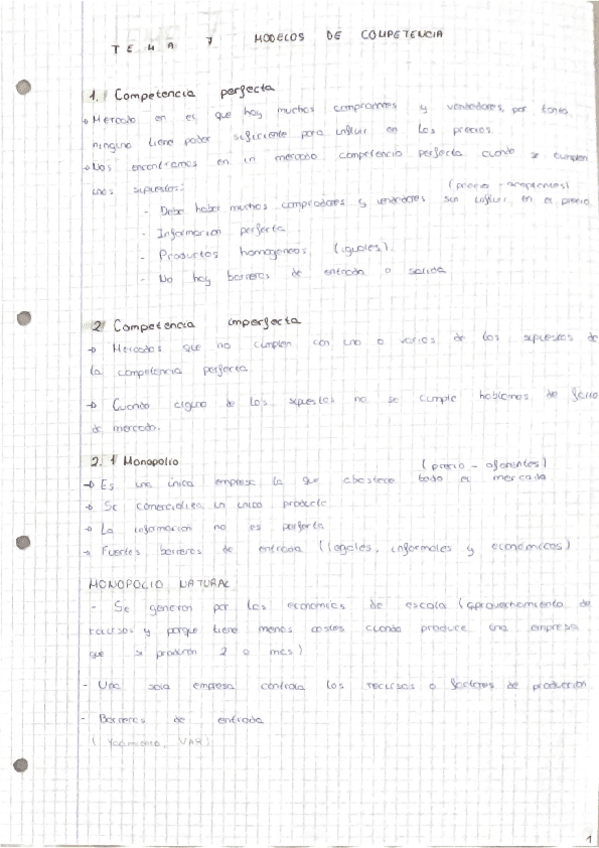 TEMA 7 MODELOS DE COMPETENCIA
1. Competencia perfecta
→ Mercado en el que hay muchos compradores y vendedores, por tanto,
ninguno tiene poder suficiente para influir en los precios.
→ Nos encontramos en un mercado competencia perfecta cuando se cumplen
unos supuestos:
(precio - aceptantes)
- Debe haber muchos compradores y vendedores sin influir en el precio
- Información perfecta
- Productos homogeneos (iguales).
- No hay barreras de entrada o salida
2 Competencia imperfecta
→ Mercados que no cumplen con uno o varios de los supuestos de
la competencia perfecta
→ Cuando alguno de los supuestos no se cumple hablamos de fallo
de mercado.
2.1 Monopolio (precio - oferentes)
→ Es una única empresa la que abastece todo el mercado
→ Se comercializa un unico producto
→ La informacion no es perfecta
→ Fuertes barreras de entrada (legales, informales y económicos)
MONOPOLIO NATURAL
- Se generan por las economias de escala (aprovechamiento de
recursos y porque tiene menos costes cuando produce una empresa
que si producen 2 o más)
- Una sola empresa controla los recursos o factores de producción
- Barreras de entrada
(Yacimiento,
1